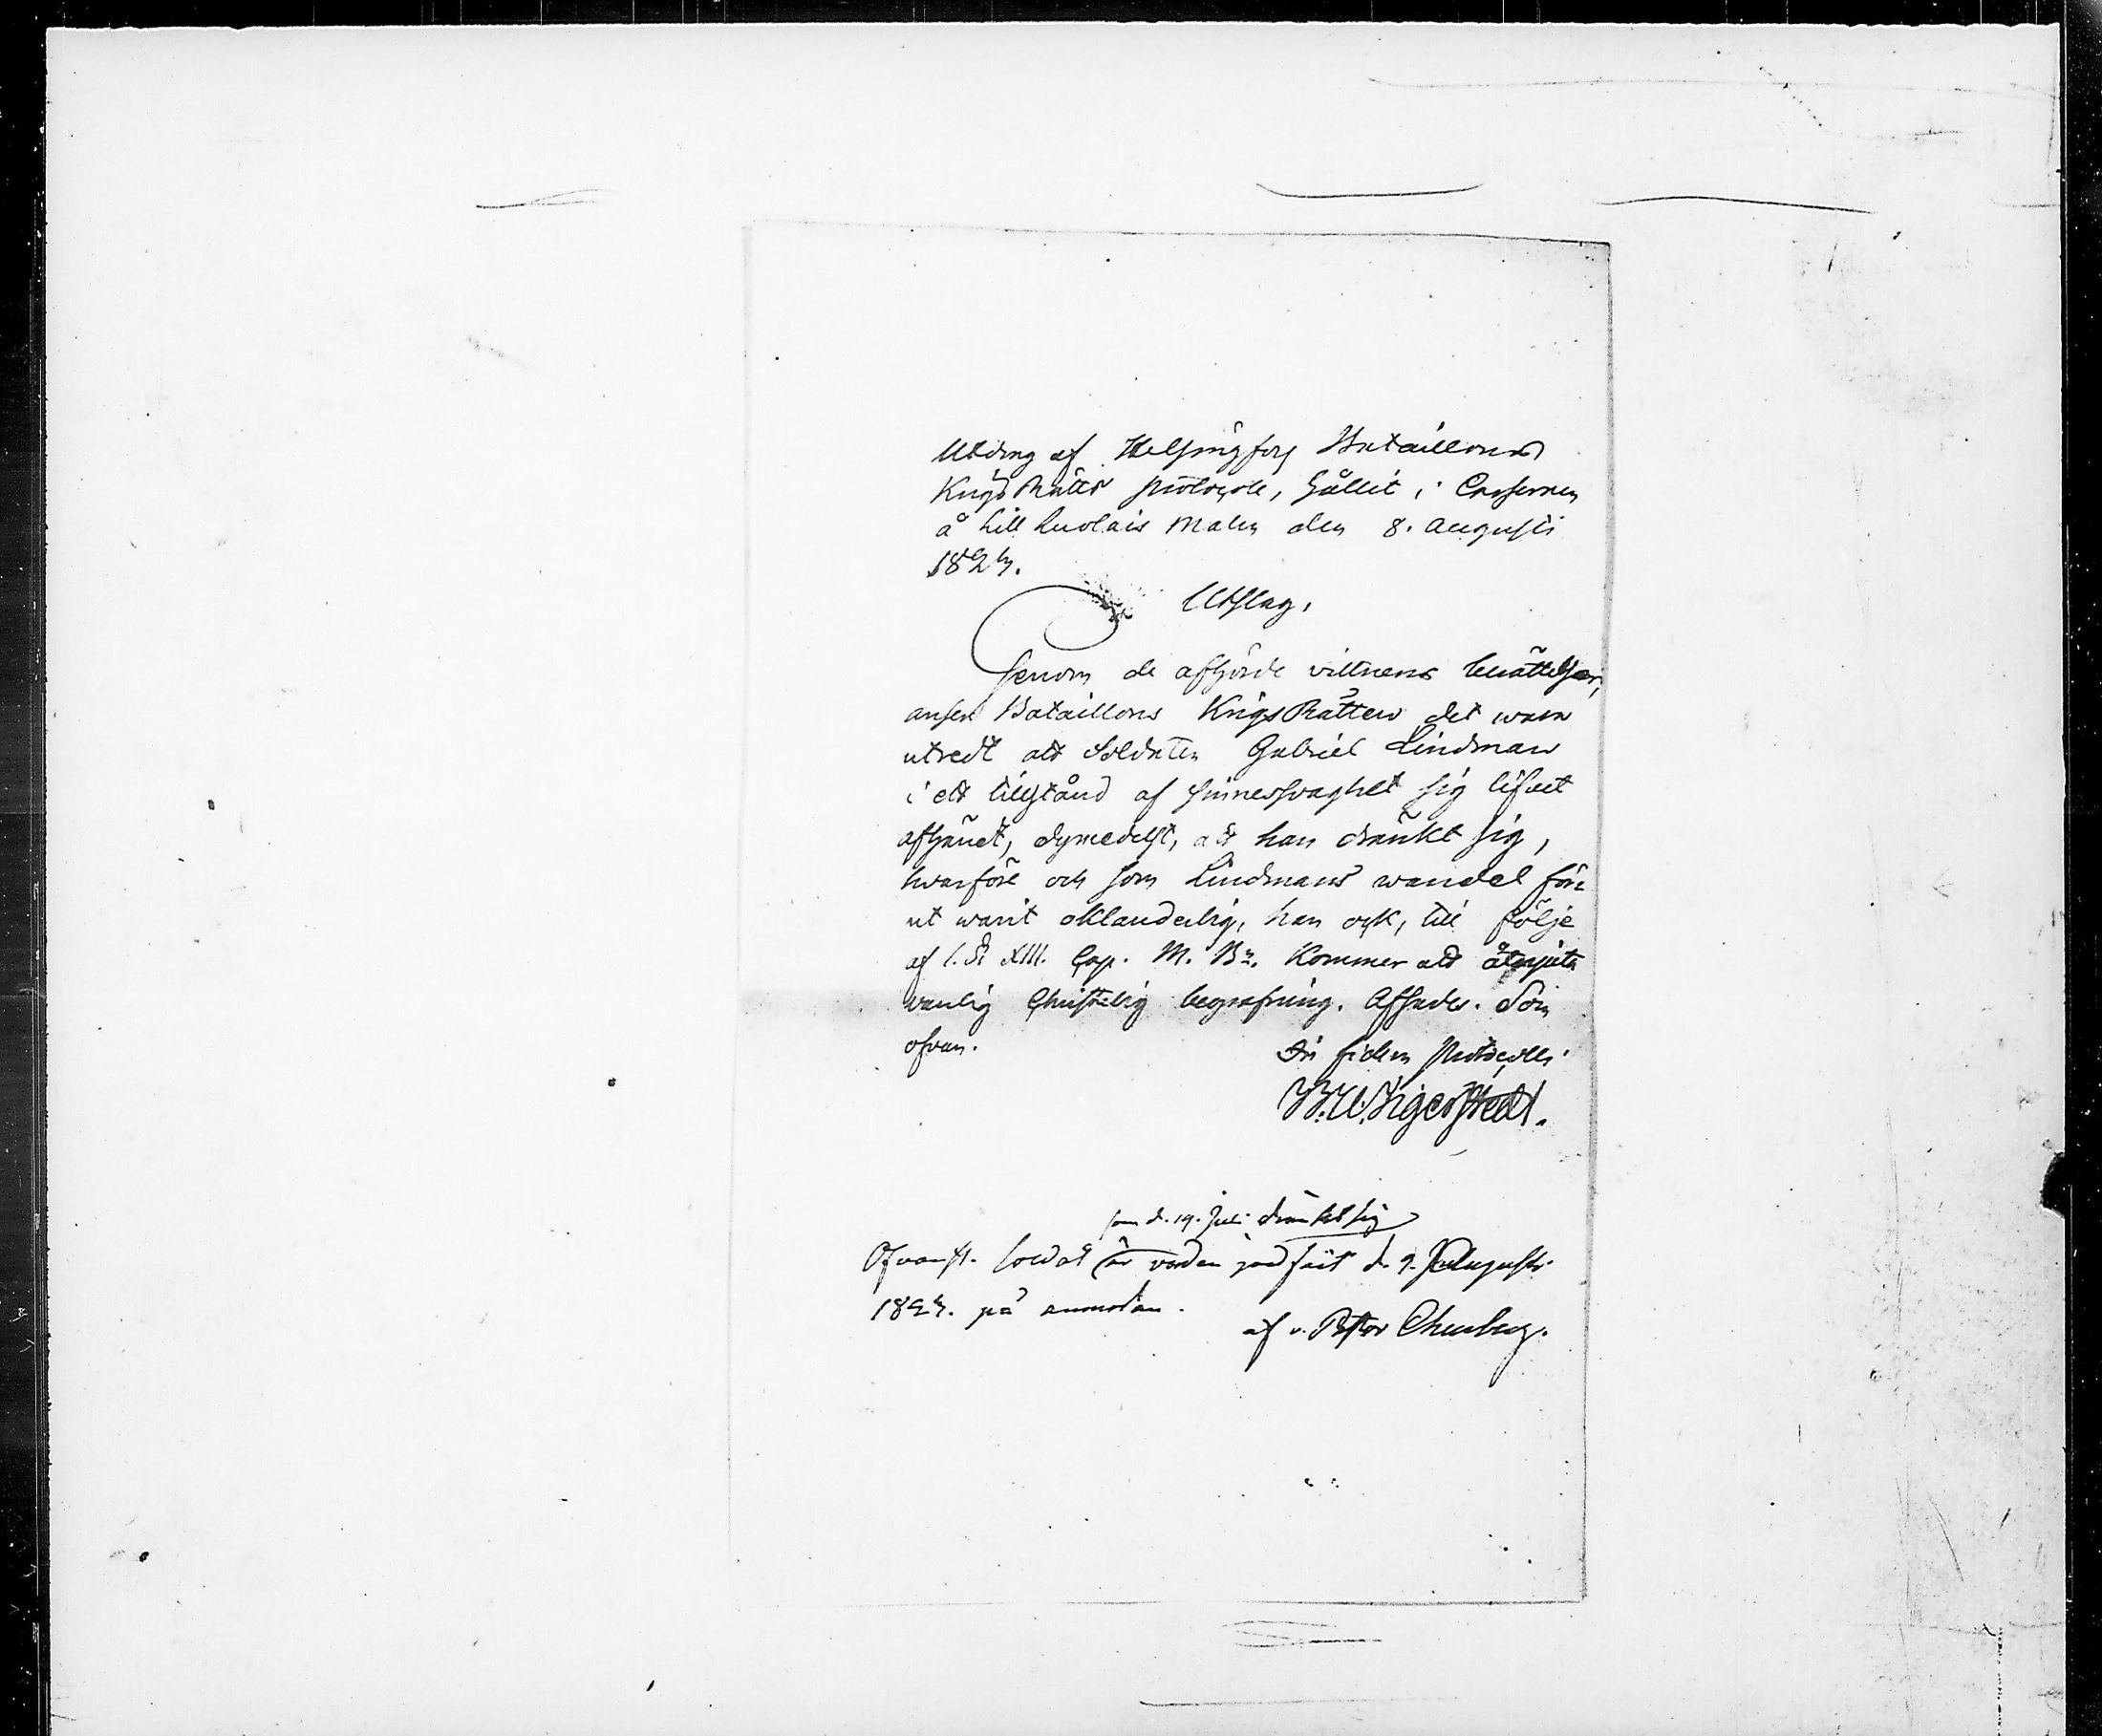 Utdrag af Helsingfors Bataillons
KrigsRätts protocoll, hållit i Casernen
å Lill Luolais Malm den 8. Augusti
1827.
Utslag.
Genom de afhörde vittnens berättelser,
anser Bataillons KrigsRätten det wara
utredt att Soldaten Gabriel Lindman
i ett tillstånd af sinnessvaghet sig lifvet
afhändt, dymedelst, att han dränkt sig,
hvarföre och som Lindmans wandel för-
ut warit oklanderlig, han ock, till följe
af 1. §. XIII. Cap. M. B. kommer att åtnjuta
vanlig Christelig begrafning. Afsades. Som
ofvan.
In fidem Protocolli
som d. 19. Juli dränkt sig
Ofvanst. soldat är worden jordfäst d. 9. Augusti
1827. på anmodan.
af v. Pastor